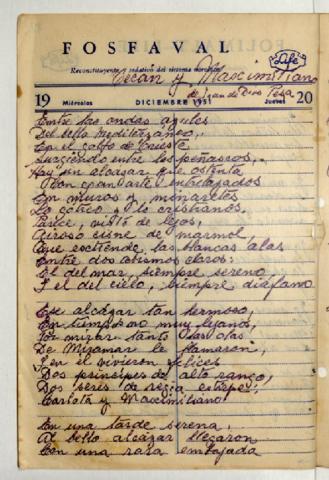 FOSFAVAL
Reconstituyente y sedativo del sistema nervioso
Life
Tecan y Maxcimiliano
de Juan de Dios Pesa
19 Miércoles DICIEMBRE 1951 Jueves 20
Entre las ondas azules
Del bello mediterraneo,
En el golfo de trieste
Surgiendo entre los peñascos,
Hay un alcazar que ostenta
Con gran arte entrelazados
En muros y minaretes
Lo gotico y lo cristianos.
Parece, visto de lejos,
Airoso cisne de marmol,
Que exctiende las blancas alas
Entre dos abismos claros:
El del mar, siempre sereno,
Y el del cielo, siempre diafano
Ese alcázar tan hermoso,
En tiempos no muy lejanos,
Por mirar tanto las olas
De Miramar le llamaron,
Y en el vivieron felices
Dos principes de alto rango,
Dos seres de regia estirpe:
Carlota y Maxcimiliano
En una tarde serena,
Al bello alcázar llegaron
Con una rara embajada